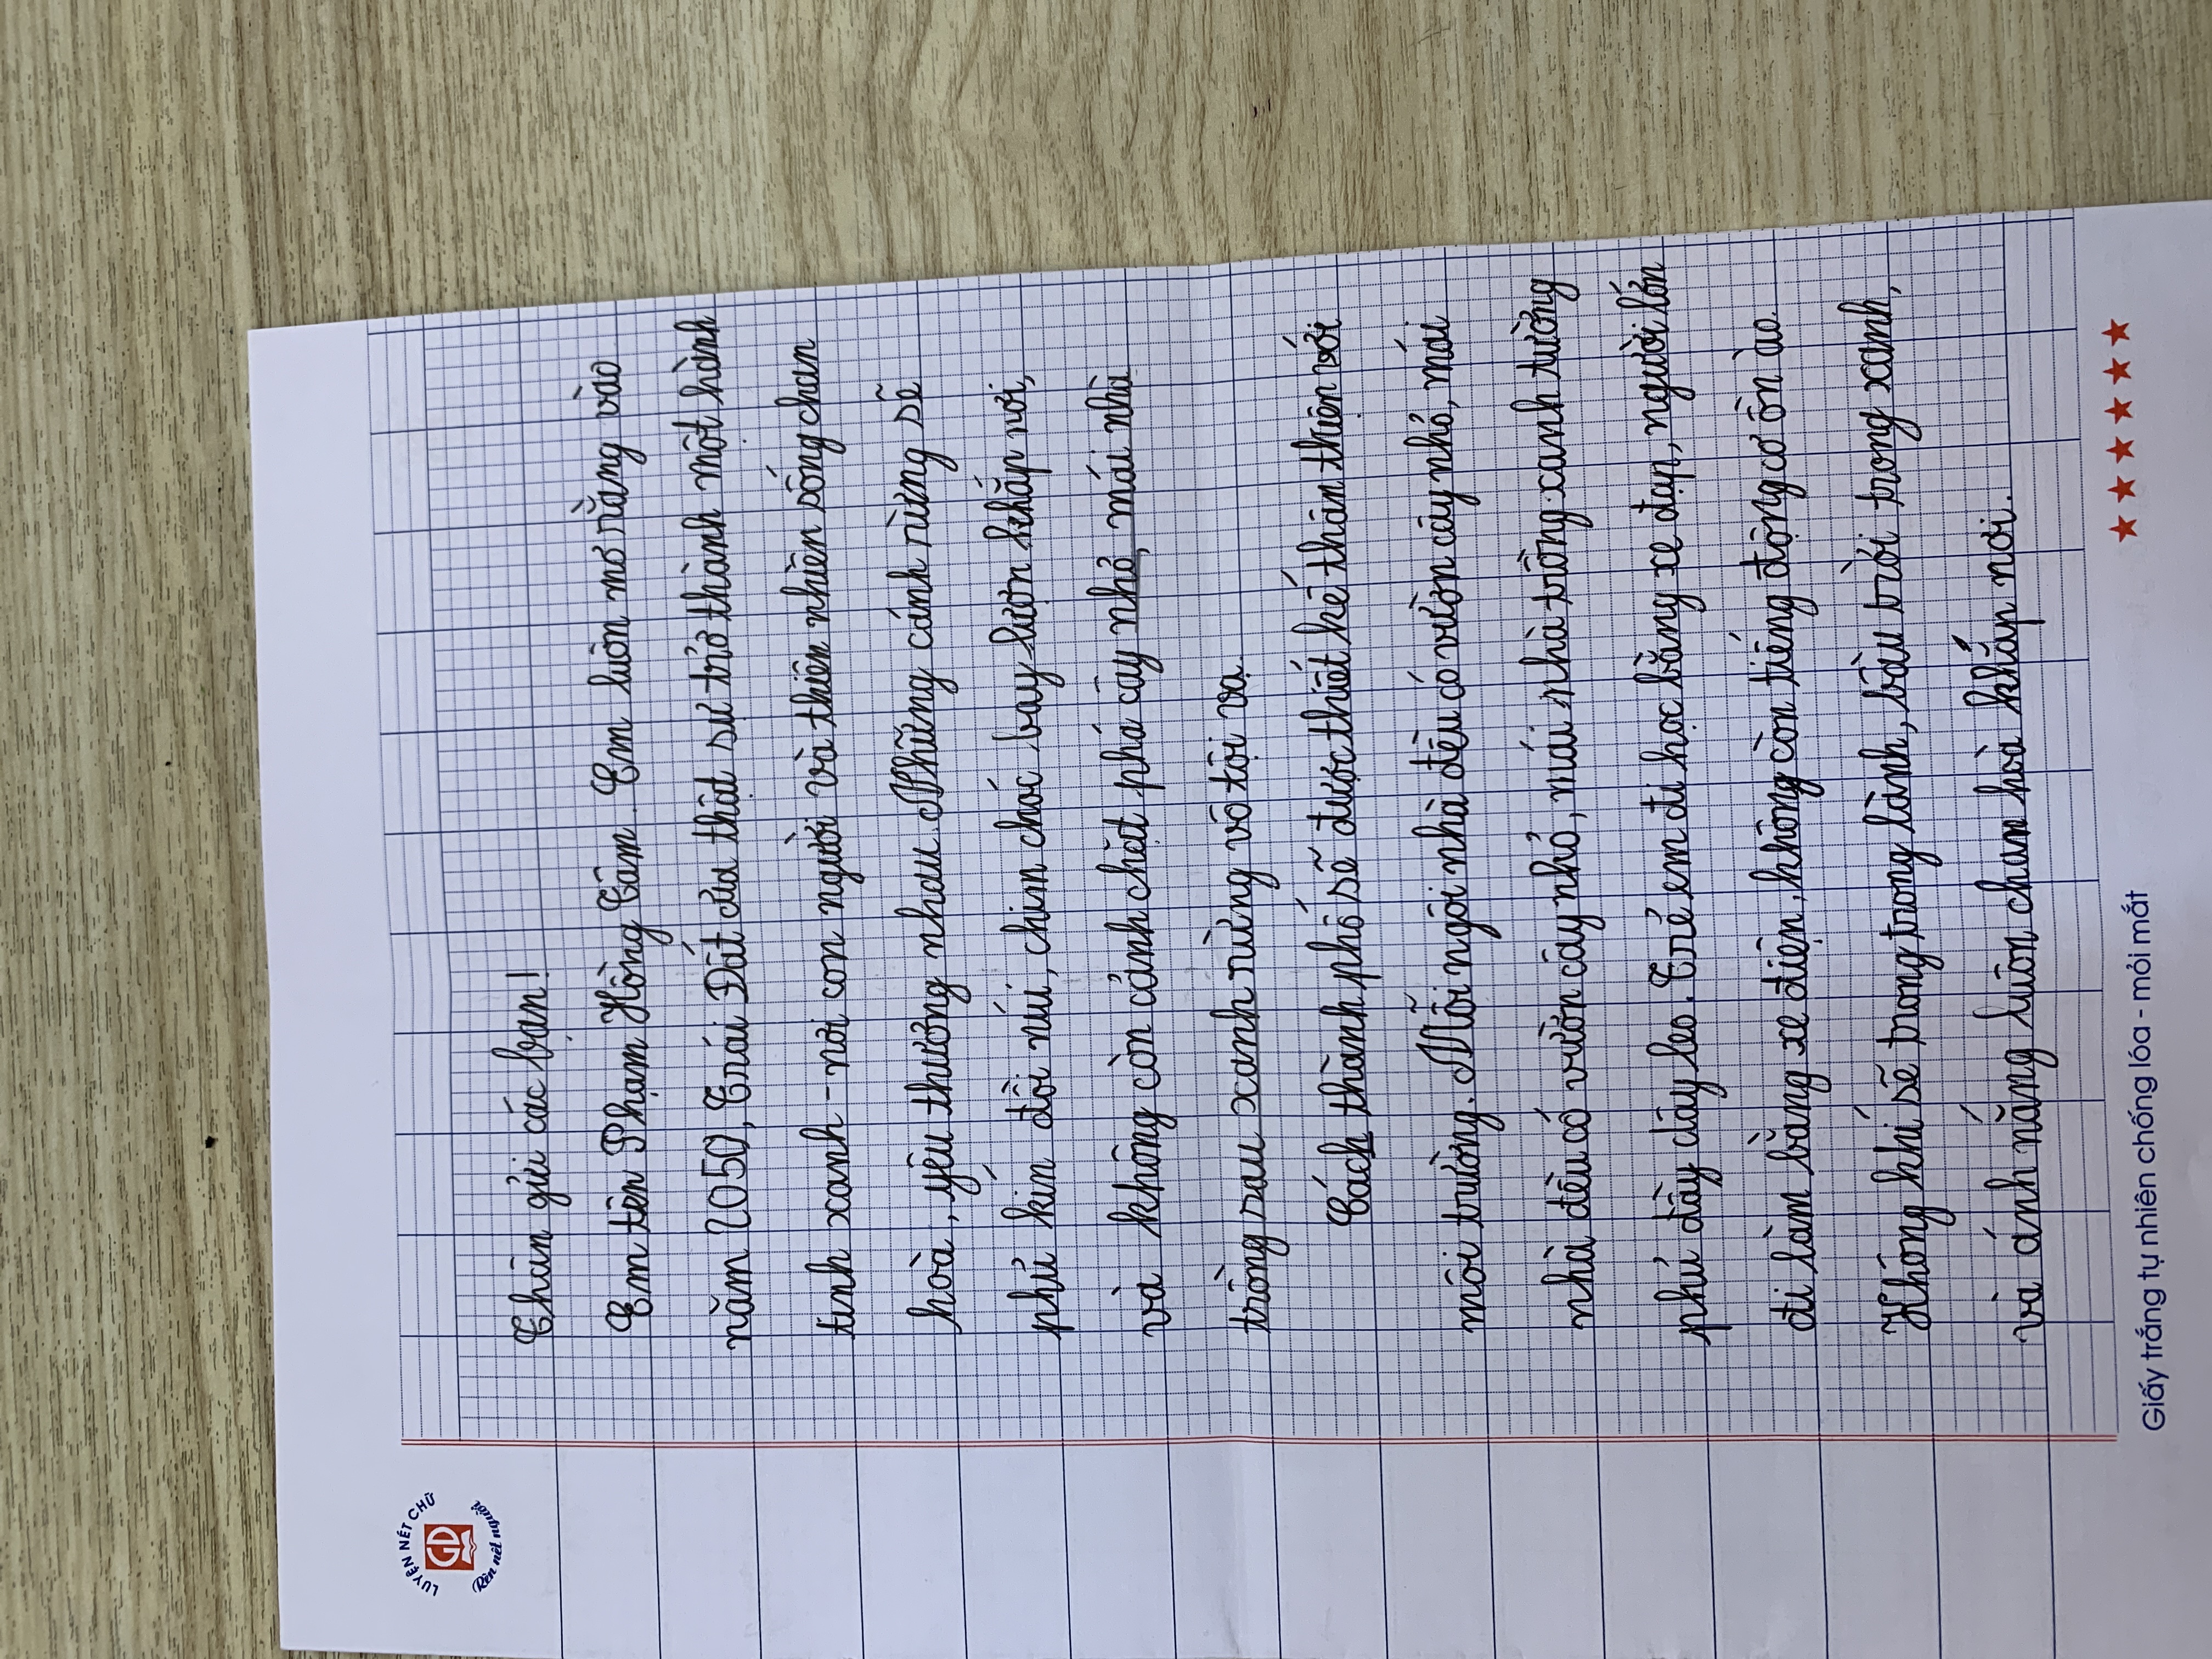 LUYỆN NÉT CHỮ
GD
Rèn nết người
Thân gửi các bạn!
Em tên Phạm Hồng Tâm. Em luôn mơ rằng vào
năm 2050, Trái Đất của thật sự trở thành một hành
tinh xanh - nơi con người và thiên nhiên sống chan
hoà, yêu thương nhau. Những cánh rừng sẽ
phủ kín đồi núi, chim chóc bay lượn khắp nơi,
và không còn cảnh chặt phá cây nhỏ, mái nhà
trồng rau xanh rừng vô tội vạ.
Cách thành phố sẽ được thiết kế thân thiện với
môi trường. Mỗi ngôi nhà đều có vườn cây nhỏ, mái
nhà đều có vườn cây nhỏ, mái nhà trồng xanh tường
phủ đầy dây leo. Trẻ em đi học bằng xe đạp, người lớn
đi làm bằng xe điện, không còn tiếng động cơ ồn ào.
Không khí sẽ trong trong lành, bầu trời trong xanh,
và ánh nắng luôn chan hoà khắp nơi.
Giấy trắng tự nhiên chống lóa - mỏi mắt